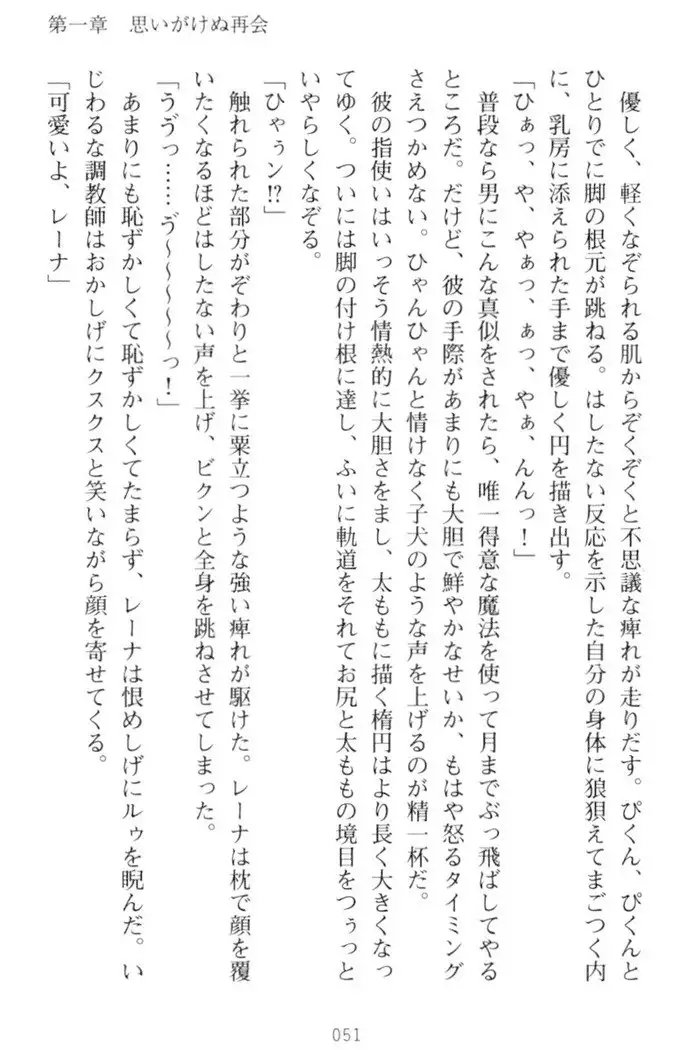 第一章　思いがけぬ再会
優しく、軽くなぞられる肌からぞくぞくと不思議な痺れが走りだす。ぴくん、ぴくんと
ひとりでに脚の根元が跳ねる。はしたない反応を示した自分の身体に狼狽えてまごつく内
に、乳房に添えられた手まで優しく円を描き出す。
「ひぁっ、や、やぁっ、ぁっ、やぁ、んんっ！」
普段なら男にこんな真似をされたら、唯一得意な魔法を使って月までぶっ飛ばしてやる
ところだ。だけど、彼の手際があまりにも大胆で鮮やかなせいか、もはや怒るタイミング
さえつかめない。ひゃんひゃんと情けなく子犬のような声を上げるのが精一杯だ。
彼の指使いはいっそう情熱的に大胆さをまし、太ももに描く楕円はより長く大きくなっ
てゆく。ついには脚の付け根に達し、ふいに軌道をそれてお尻と太ももの境目をつぅっと
いやらしくなぞる。
「ひゃぅン!?」
触れられた部分がぞわりと一挙に粟立つような強い痺れが駆けた。レーナは枕で顔を覆
いたくなるほどはしたない声を上げ、ビクンと全身を跳ねさせてしまった。
「うゔっ……ゔ〜〜〜〜〜っ！」
あまりにも恥ずかしくて恥ずかしくてたまらず、レーナは恨めしげにルゥを睨んだ。い
じわるな調教師はおかしげにクスクスと笑いながら顔を寄せてくる。
「可愛いよ、レーナ」
051